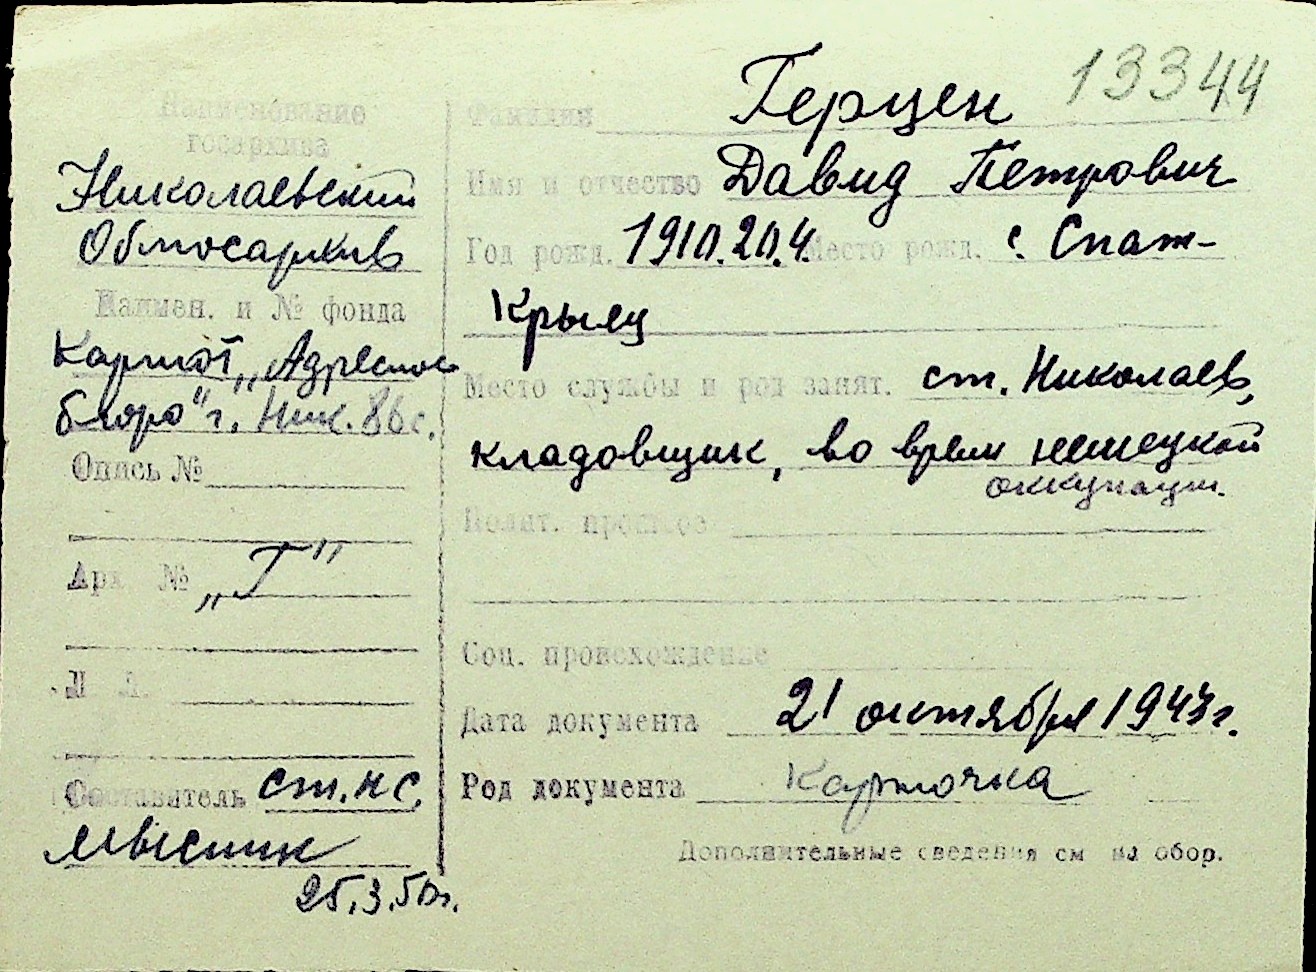 13344
Наименование
госархива
Николаевский
Облгосархив
Наимен. и № фонда
Картот. „Адресное
бюро" г. Ник.
Опись №
Арх. № „Г"
Л. Л.
Составитель ст. н с.
Мысник
25.3.50г.
Фамилия Герцен
Имя и отчество Давид Петрович
Год рожд. 1910.20.4. Место рожд. с. Спат-
Крылц
Место службы и род занят. ст. Николаев,
кладовщик, во врем немецкой
оккупации.
Полит. прошлое
Соц. происхождение
Дата документа 21 октября 1943г.
Род документа Карточка
Дополнительные сведения см на обор.